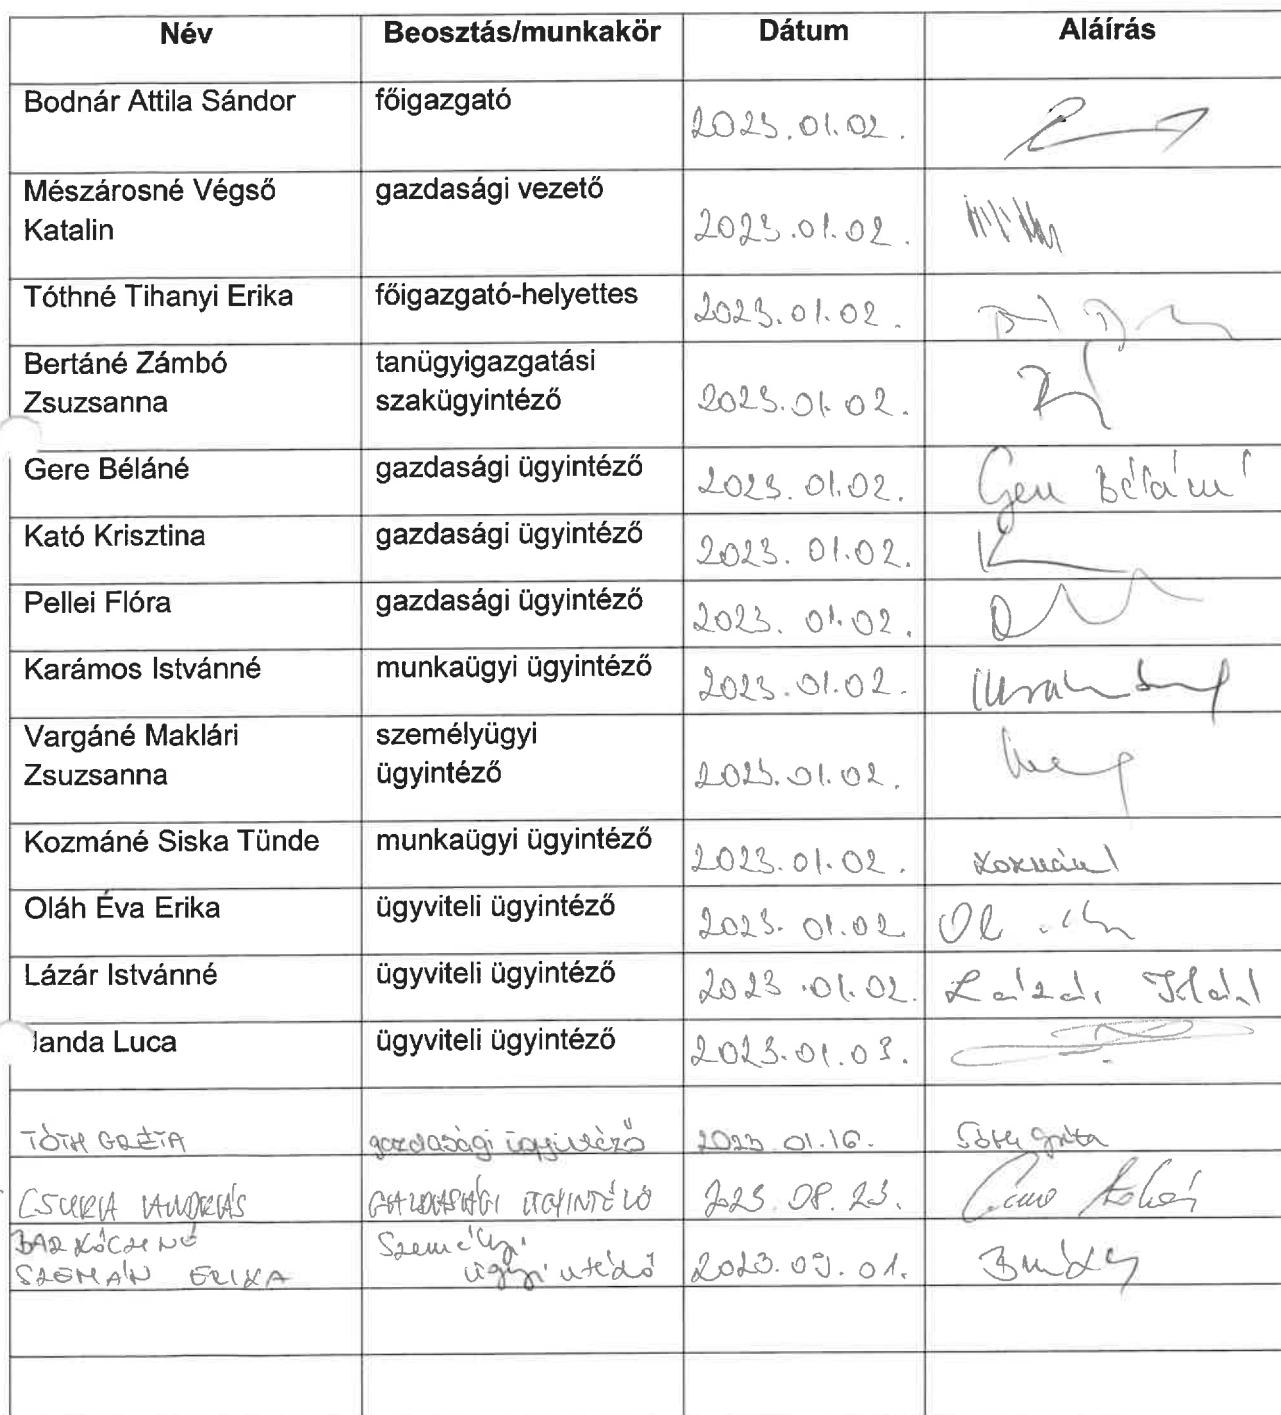 Név Beosztás/munkakör Dátum Aláírás
Bodnár Attila Sándor főigazgató 2023.01.02.
Mészárosné Végső Katalin gazdasági vezető 2023.01.02.
Tóthné Tihanyi Erika főigazgató-helyettes 2023.01.02.
Bertáné Zámbó Zsuzsanna tanügyigazgatási szakügyintéző 2023.01.02.
Gere Béláné gazdasági ügyintéző 2023.01.02. Gere Béláné
Kató Krisztina gazdasági ügyintéző 2023.01.02.
Pellei Flóra gazdasági ügyintéző 2023.01.02.
Karámos Istvánné munkaügyi ügyintéző 2023.01.02.
Vargáné Maklári Zsuzsanna személyügyi ügyintéző 2023.01.02.
Kozmáné Siska Tünde munkaügyi ügyintéző 2023.01.02. Kozmáné
Oláh Éva Erika ügyviteli ügyintéző 2023.01.02
Lázár Istvánné ügyviteli ügyintéző 2023.01.02. Lázár Istvánné
Luca ügyviteli ügyintéző 2023.01.03.
TÓTH GRÉTA gazdasági ügyintéző 2023.01.16. Tóth Gréta
ANDRÁS GAZDASÁGI ÜGYINTÉZŐ 2023.08.23.
BARKÓCZINÉ SZEMÁN ERIKA Személyügyi ügyintéző 2023.09.01.